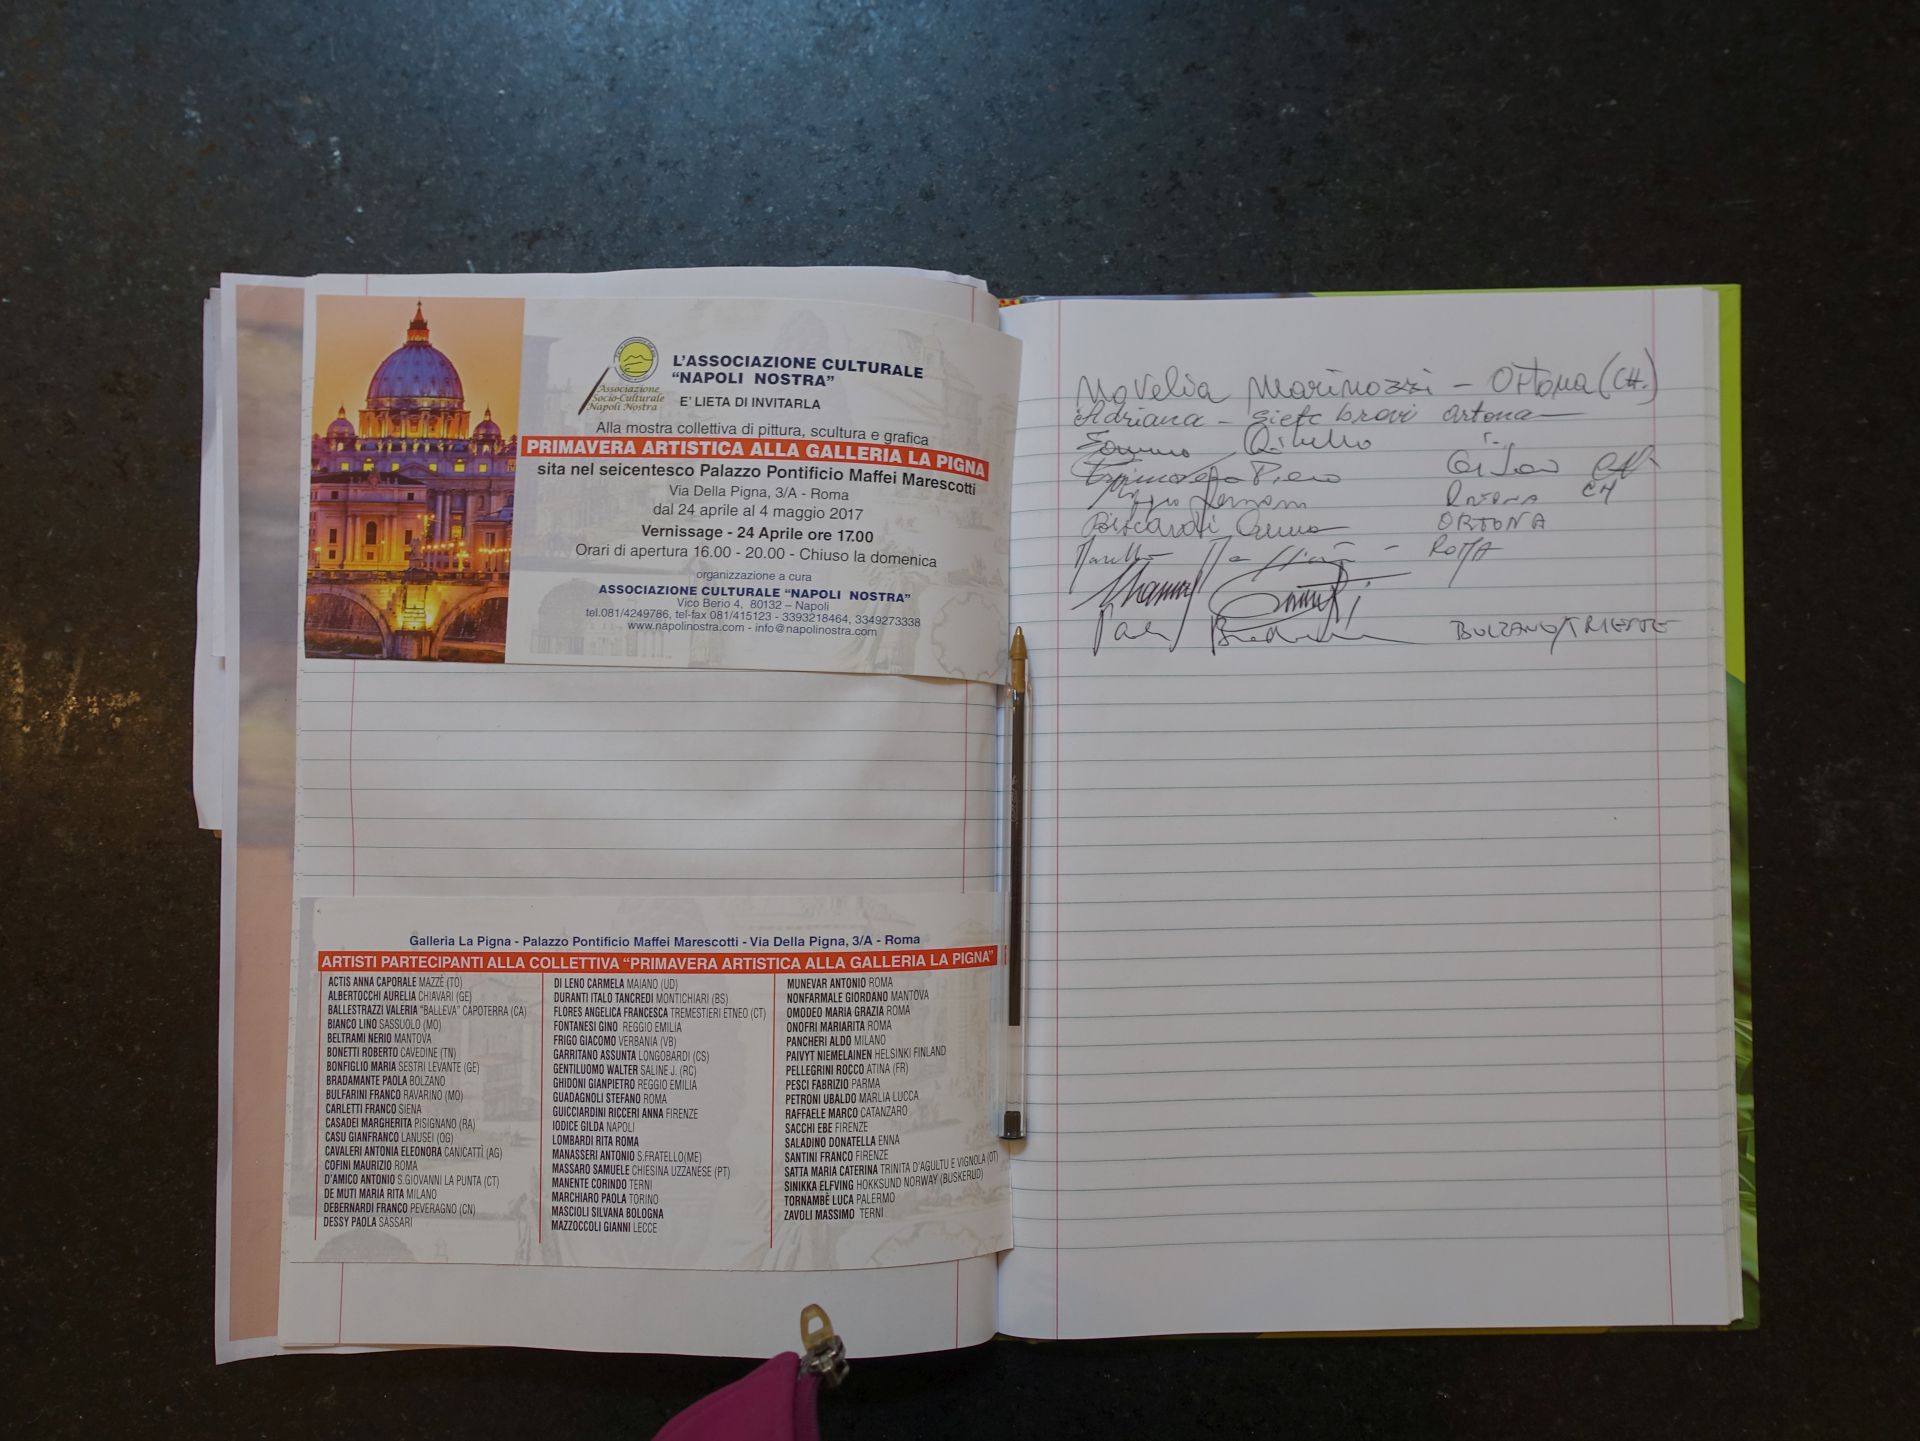 L'ASSOCIAZIONE CULTURALE
"NAPOLI NOSTRA"
Associazione
Socio-Culturale
Napoli Nostra
E' LIETA DI INVITARLA
Alla mostra collettiva di pittura, scultura e grafica
PRIMAVERA ARTISTICA ALLA GALLERIA LA PIGNA
sita nel seicentesco Palazzo Pontificio Maffei Marescotti
Via Della Pigna, 3/A - Roma
dal 24 aprile al 4 maggio 2017
Vernissage - 24 Aprile ore 17.00
Orari di apertura 16.00 - 20.00 - Chiuso la domenica
organizzazione a cura
ASSOCIAZIONE CULTURALE "NAPOLI NOSTRA"
Vico Berio 4, 80132 – Napoli
tel.081/4249786, tel-fax 081/415123 - 3393218464, 3349273338
www.napolinostra.com - info@napolinostra.com
Galleria La Pigna - Palazzo Pontificio Maffei Marescotti - Via Della Pigna, 3/A - Roma
ARTISTI PARTECIPANTI ALLA COLLETTIVA "PRIMAVERA ARTISTICA ALLA GALLERIA LA PIGNA"
ACTIS ANNA CAPORALE MAZZÈ (TO)
ALBERTOCCHI AURELIA CHIAVARI (GE)
BALLESTRAZZI VALERIA "BALLEVA" CAPOTERRA (CA)
BIANCO LINO SASSUOLO (MO)
BELTRAMI NERIO MANTOVA
BONETTI ROBERTO CAVEDINE (TN)
BONFIGLIO MARIA SESTRI LEVANTE (GE)
BRADAMANTE PAOLA BOLZANO
BULFARINI FRANCO RAVARINO (MO)
CARLETTI FRANCO SIENA
CASADEI MARGHERITA PISIGNANO (RA)
CASU GIANFRANCO LANUSEI (OG)
CAVALERI ANTONIA ELEONORA CANICATTÌ (AG)
COFINI MAURIZIO ROMA
D'AMICO ANTONIO S.GIOVANNI LA PUNTA (CT)
DE MUTI MARIA RITA MILANO
DEBERNARDI FRANCO PEVERAGNO (CN)
DESSY PAOLA SASSARI
DI LENO CARMELA MAIANO (UD)
DURANTI ITALO TANCREDI MONTICHIARI (BS)
FLORES ANGELICA FRANCESCA TREMESTIERI ETNEO (CT)
FONTANESI GINO REGGIO EMILIA
FRIGO GIACOMO VERBANIA (VB)
GARRITANO ASSUNTA LONGOBARDI (CS)
GENTILUOMO WALTER SALINE J. (RC)
GHIDONI GIANPIETRO REGGIO EMILIA
GUADAGNOLI STEFANO ROMA
GUICCIARDINI RICCERI ANNA FIRENZE
IODICE GILDA NAPOLI
LOMBARDI RITA ROMA
MANASSERI ANTONIO S.FRATELLO(ME)
MASSARO SAMUELE CHIESINA UZZANESE (PT)
MANENTE CORINDO TERNI
MARCHIARO PAOLA TORINO
MASCIOLI SILVANA BOLOGNA
MAZZOCCOLI GIANNI LECCE
MUNEVAR ANTONIO ROMA
NONFARMALE GIORDANO MANTOVA
OMODEO MARIA GRAZIA ROMA
ONOFRI MARIARITA ROMA
PANCHERI ALDO MILANO
PAIVYT NIEMELAINEN HELSINKI FINLAND
PELLEGRINI ROCCO ATINA (FR)
PESCI FABRIZIO PARMA
PETRONI UBALDO MARLIA LUCCA
RAFFAELE MARCO CATANZARO
SACCHI EBE FIRENZE
SALADINO DONATELLA ENNA
SANTINI FRANCO FIRENZE
SATTA MARIA CATERINA TRINITA D'AGULTU E VIGNOLA (OT)
SINIKKA ELFVING HOKKSUND NORWAY (BUSKERUD)
TORNAMBÈ LUCA PALERMO
ZAVOLI MASSIMO TERNI
Novelia Marinozzi - Ortona (CH.)
Adriana - siete bravi ortona
Piero
CH
ORTONA
- ROMA
BOLZANO/TRIESTE